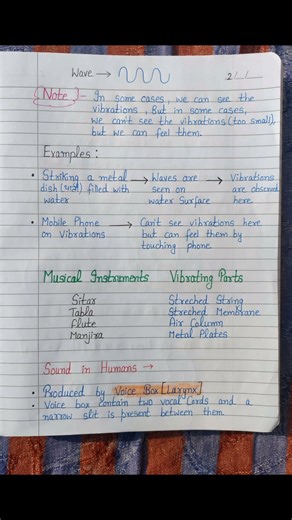 Wave → 2/ /
(Note) :- In some cases, we can see the
vibrations, But in some cases,
we can't see the vibrations (too small),
but we can feel them.
Examples :
• Striking a metal → Waves are → Vibrations
dish filled with seen on are observed
water water Surface here.
• Mobile Phone → Can't see vibrations here
on Vibrations but can feel them by
touching phone.
Musical Instruments Vibrating Parts
Sitar Streched String
Tabla Streched Membrane
flute Air Column
Manjira Metal Plates
Sound in Humans →
• Produced by Voice Box [Larynx]
• Voice box contain two vocal Cords and a
narrow slit is present between them.